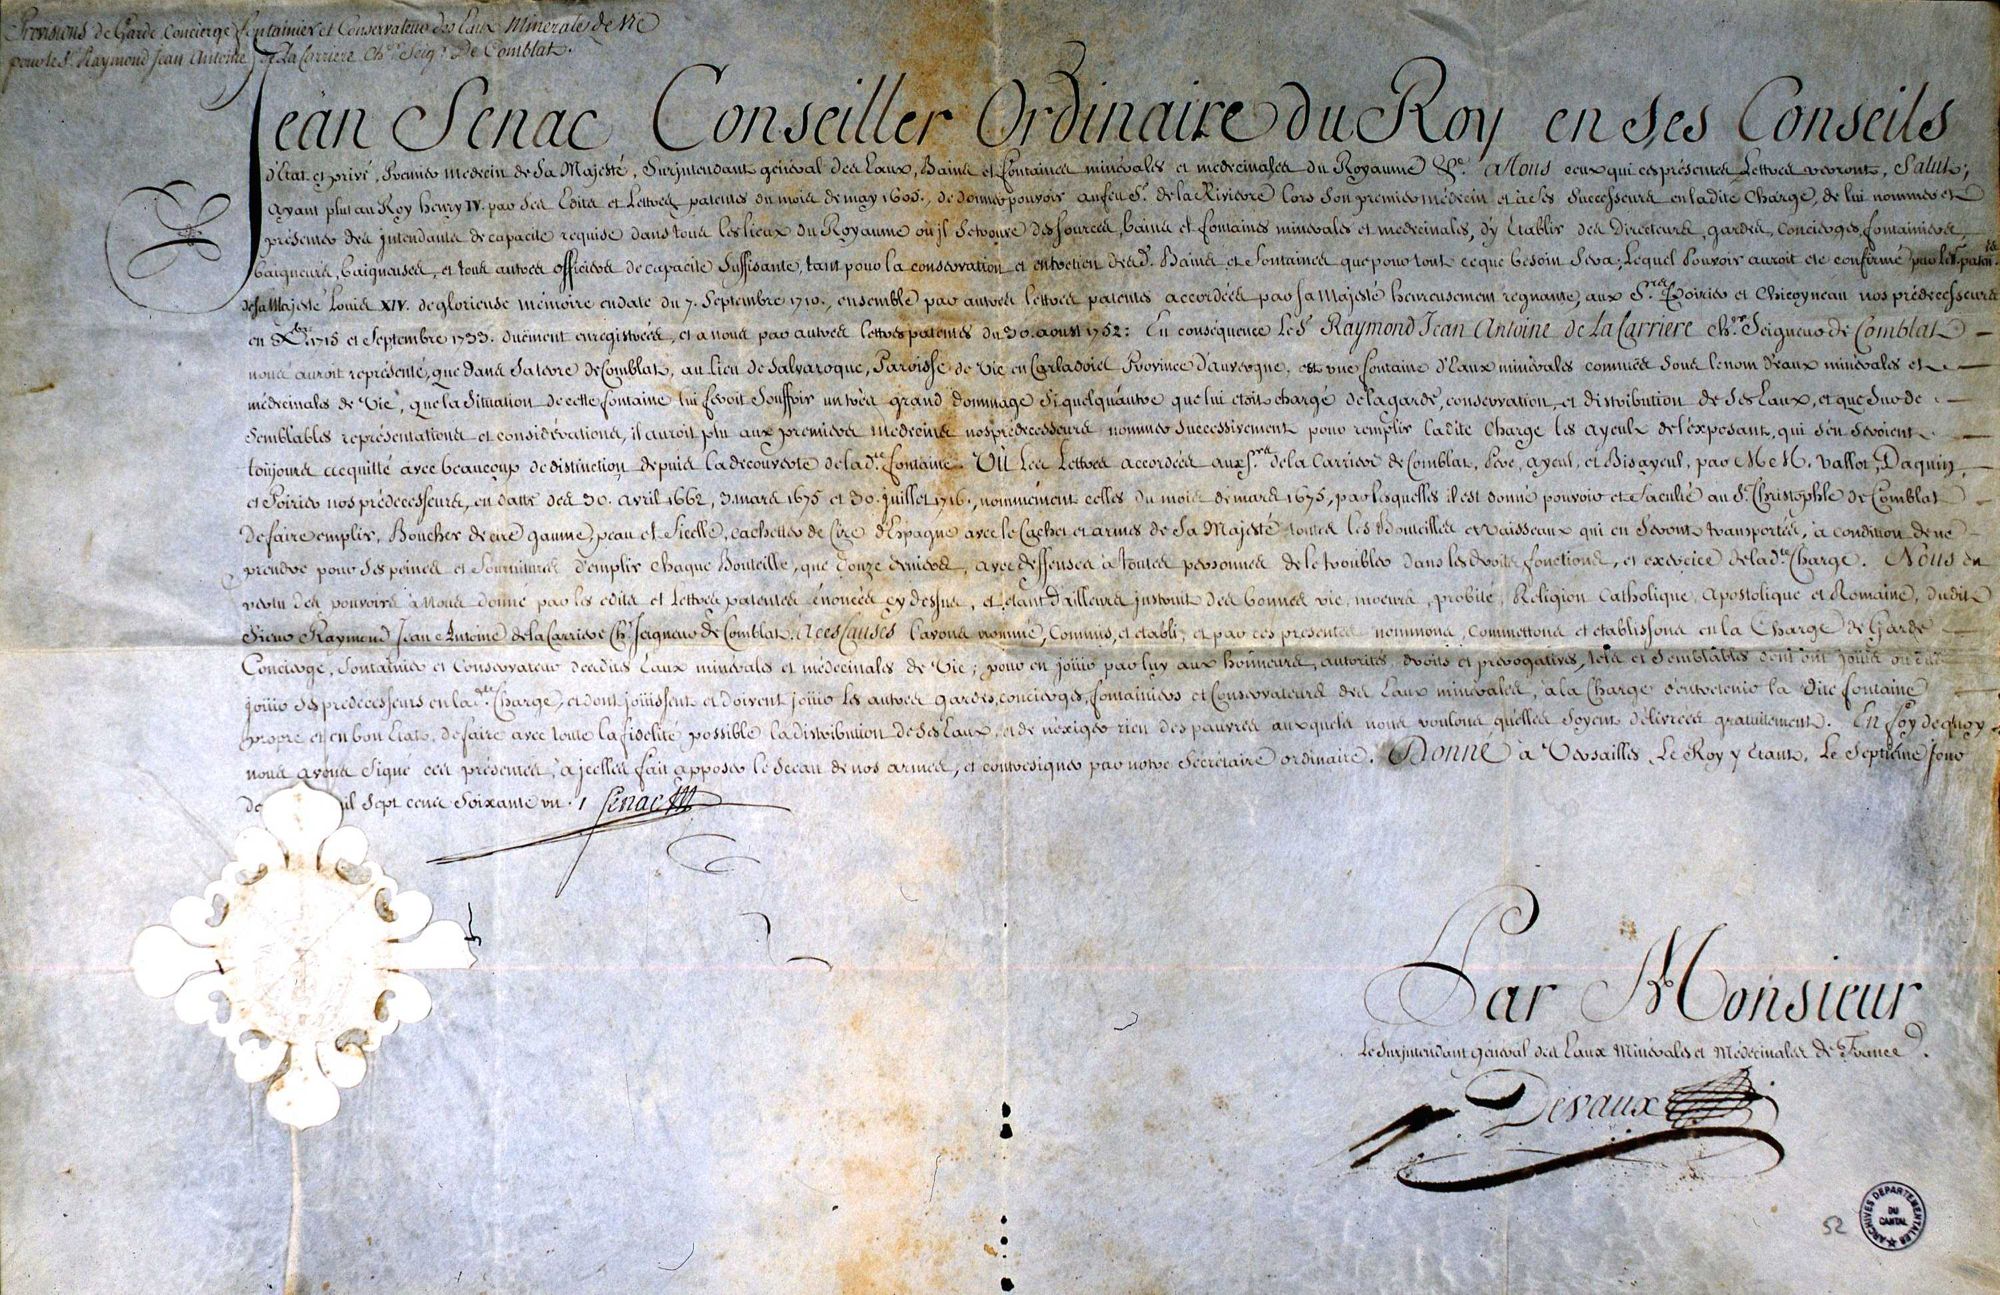 Provisions de Garde Concierge Fontainier et Conservateur des Eaux Minerales de Vic
pour le Sr. Raymond Jean Antoine de La Carriere Chr. Seigr. De Comblat.
Jean Senac Conseiller Ordinaire du Roy en ses Conseils
d'État et privé, Premier medecin de Sa Majesté, Surjntendant général des Eaux, Bains et Fontaines minérales et medecinales du Royaume &c. A tous ceux qui ces présentes Lettres verront, Salut;
Ayant plu au Roy henry IV. par ses Edits et Lettres patentes du mois de may 1605., de donner pouvoir au feu Sr. de la Riviere lors son premier médecin et à ses Successeurs en ladite Charge, de lui nommer et
présenter des jntendants de capacité requise dans tous les lieux du Royaume où jl se trouve des sources, bains et fontaines minérales et medecinales, d'y Etablir des Directeurs, gardes, Concierges, fontainiers,
baigneurs, baigneuses, et tous autres officiers de capacité suffisante, tant pour la conservation et entretien desd. Bains et Fontaines que pour tout ce que besoin sera; Lequel Pouvoir auroit eté confirmé par les patentes
de sa Majesté Louis XIV. de glorieuse mémoire en date du 7. Septembre 1710., ensemble par autres lettres patentes accordées par sa Majesté heureusement regnante, aux Srs. Poirier et Chicoyneau nos prédecesseurs
en Xbre. 1715 et Septembre 1733. duëment enregistrées, et a nous par autres lettres patentes du 30. aoust 1752: En conséquence le Sr. Raymond Jean Antoine de La Carriere Chr. Seigneur de Comblat
nous auroit représenté, que dans sa terre de Comblat, au lieu de Salvaroque, Paroisse de Vic en Carladois Province d'auvergne, est une fontaine d'Eaux minérales connües sous le nom d'eaux minérales et
médecinales de Vic, que la situation de cette fontaine lui feroit souffrir un très grand dommage si quelqu'autre que lui etoit chargé de la garde, conservation, et distribution de ses Eaux, et que sur de
semblables représentations et considérations, il auroit plu aux premiers medecins nos prédecesseurs nommer successivement pour remplir ladite Charge les ayeulx de l'exposant, qui s'en seroient
toûjours acquitté avec beaucoup de distinction depuis la découverte de lad.te fontaine. Vû Les Lettres accordées aux Srs. de la Carriere de Comblat, Pere, ayeul, et Bisayeul, par M.M. Vallot, Daquin,
et Poirier nos prédecesseurs, en datte des 30. avril 1662, 3. mars 1675 et 30. juillet 1716., nommément celles du mois de mars 1675, par lesquelles il est donné pouvoir et faculté au Sr. Christophle de Comblat
de faire emplir, Boucher de cire gaume, peau et ficelle, cacheter de Cire d'Espagne avec le Cachet et armes de Sa Majesté toutes les Bouteilles et Vaisseaux qui en seront transportés, à condition de ne
prendre pour ses peines et fournitures d'emplir chaque Bouteille, que douze deniers, avec deffenses à toutes personnes de le troubler dans les droits, fonctions, et exercice de lad.te Charge. Nous en
vertu des pouvoirs à Nous donné par les edits et Lettres patentes énoncées cy dessus, et etant d'ailleurs jnstruit des bonnes vie, moeurs, probité, Religion Catholique, Apostolique et Romaine, dudit
Sieur Raymond Jean Antoine de la Carriere Chr. Seigneur de Comblat. A ces Causes l'avons nommé, Commis, et établi; et par ces présentes nommons, commettons et etablissons en la Charge de Garde
Concierge, Fontainier et Conservateur desdites Eaux minérales et médecinales de Vic; pour en joüir par luy aux honneurs, autorités, droits et prérogatives, tels et semblables dont ont joüis ou dû
joüir ses predécesseurs en lad.te Charge, et dont joüissent et doivent joüir les autres gardes, concierges, fontainiers et Conservateurs des Eaux minérales, à la Charge d'entretenir la dite fontaine
propre et en bon Etat, de faire avec toute la fidélité possible la distribution de ses Eaux, et de n'exiger rien des pauvres auxquels nous voulons qu'elles soyent délivrées gratuitement. En foy de quoy
nous avons signé ces présentes, à jcelles fait apposer le Sceau de nos armes, et contresigner par notre Sécrétaire ordinaire. Donné à Versailles, Le Roy y Etant, Le Septiéme Jour
il Sept cent Soixante un. Senac
Par Monsieur
Le Surjntendant Général des Eaux Minérales et Médecinales de France.
Devaux
52
ARCHIVES DEPARTEMENTALES
DU
CANTAL